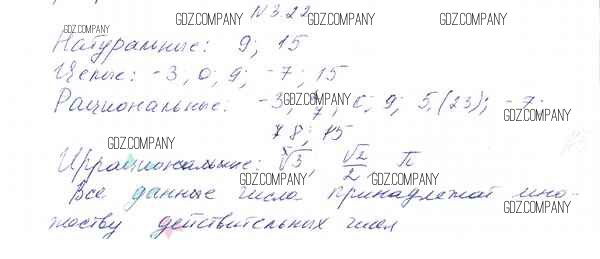 GDZ.COMPANY №3.22 GDZ.COMPANY
GDZ.COMPANY
Натуральные: 9; 15
GDZ.COMPANY
Целые: -3; 0; 9; -7; 15
GDZ.COMPANY
Рациональные: -3; 0; 9; 5,(23); -7;
GDZ.COMPANY
8; 15
GDZ.COMPANY
Иррациональные: √3, √2/2, π
GDZ.COMPANY GDZ.COMPANY
Все данные числа принадлежат мно-
GDZ.COMPANY
жеству действительных чисел